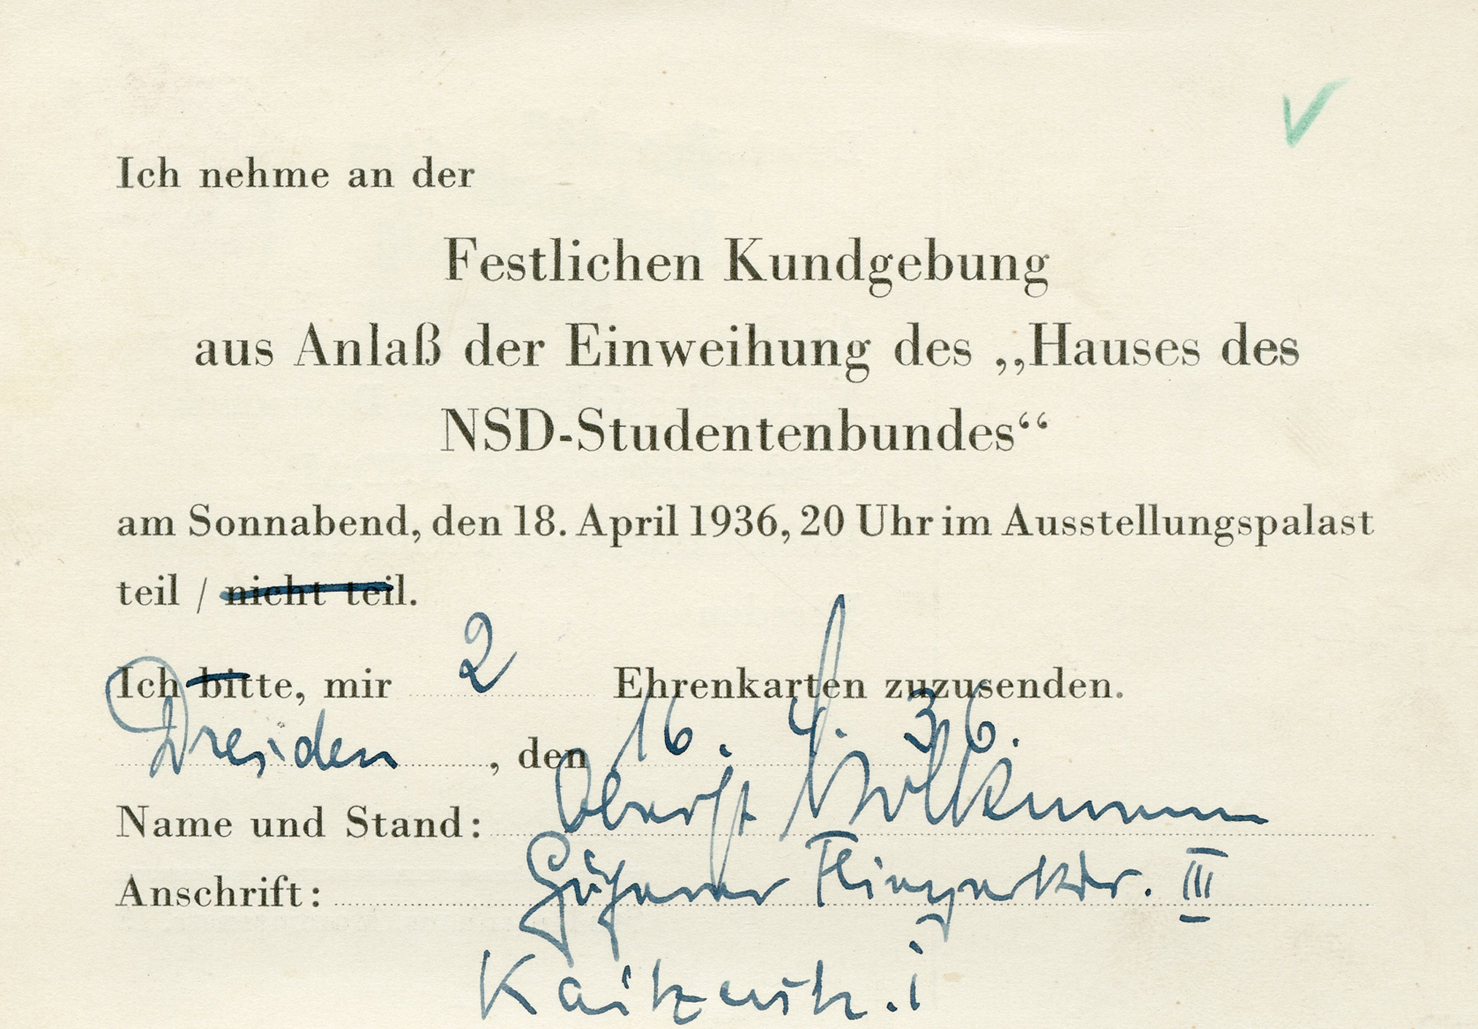 Ich nehme an der
Festlichen Kundgebung
aus Anlaß der Einweihung des „Hauses des
NSD-Studentenbundes“
am Sonnabend, den 18. April 1936, 20 Uhr im Ausstellungspalast
teil / nicht teil.
Ich bitte, mir 2 Ehrenkarten zuzusenden.
Dresden, den 16. 4. 36.
Name und Stand: Oberst Volkmann
Anschrift: III
Kaitzerstr. 1